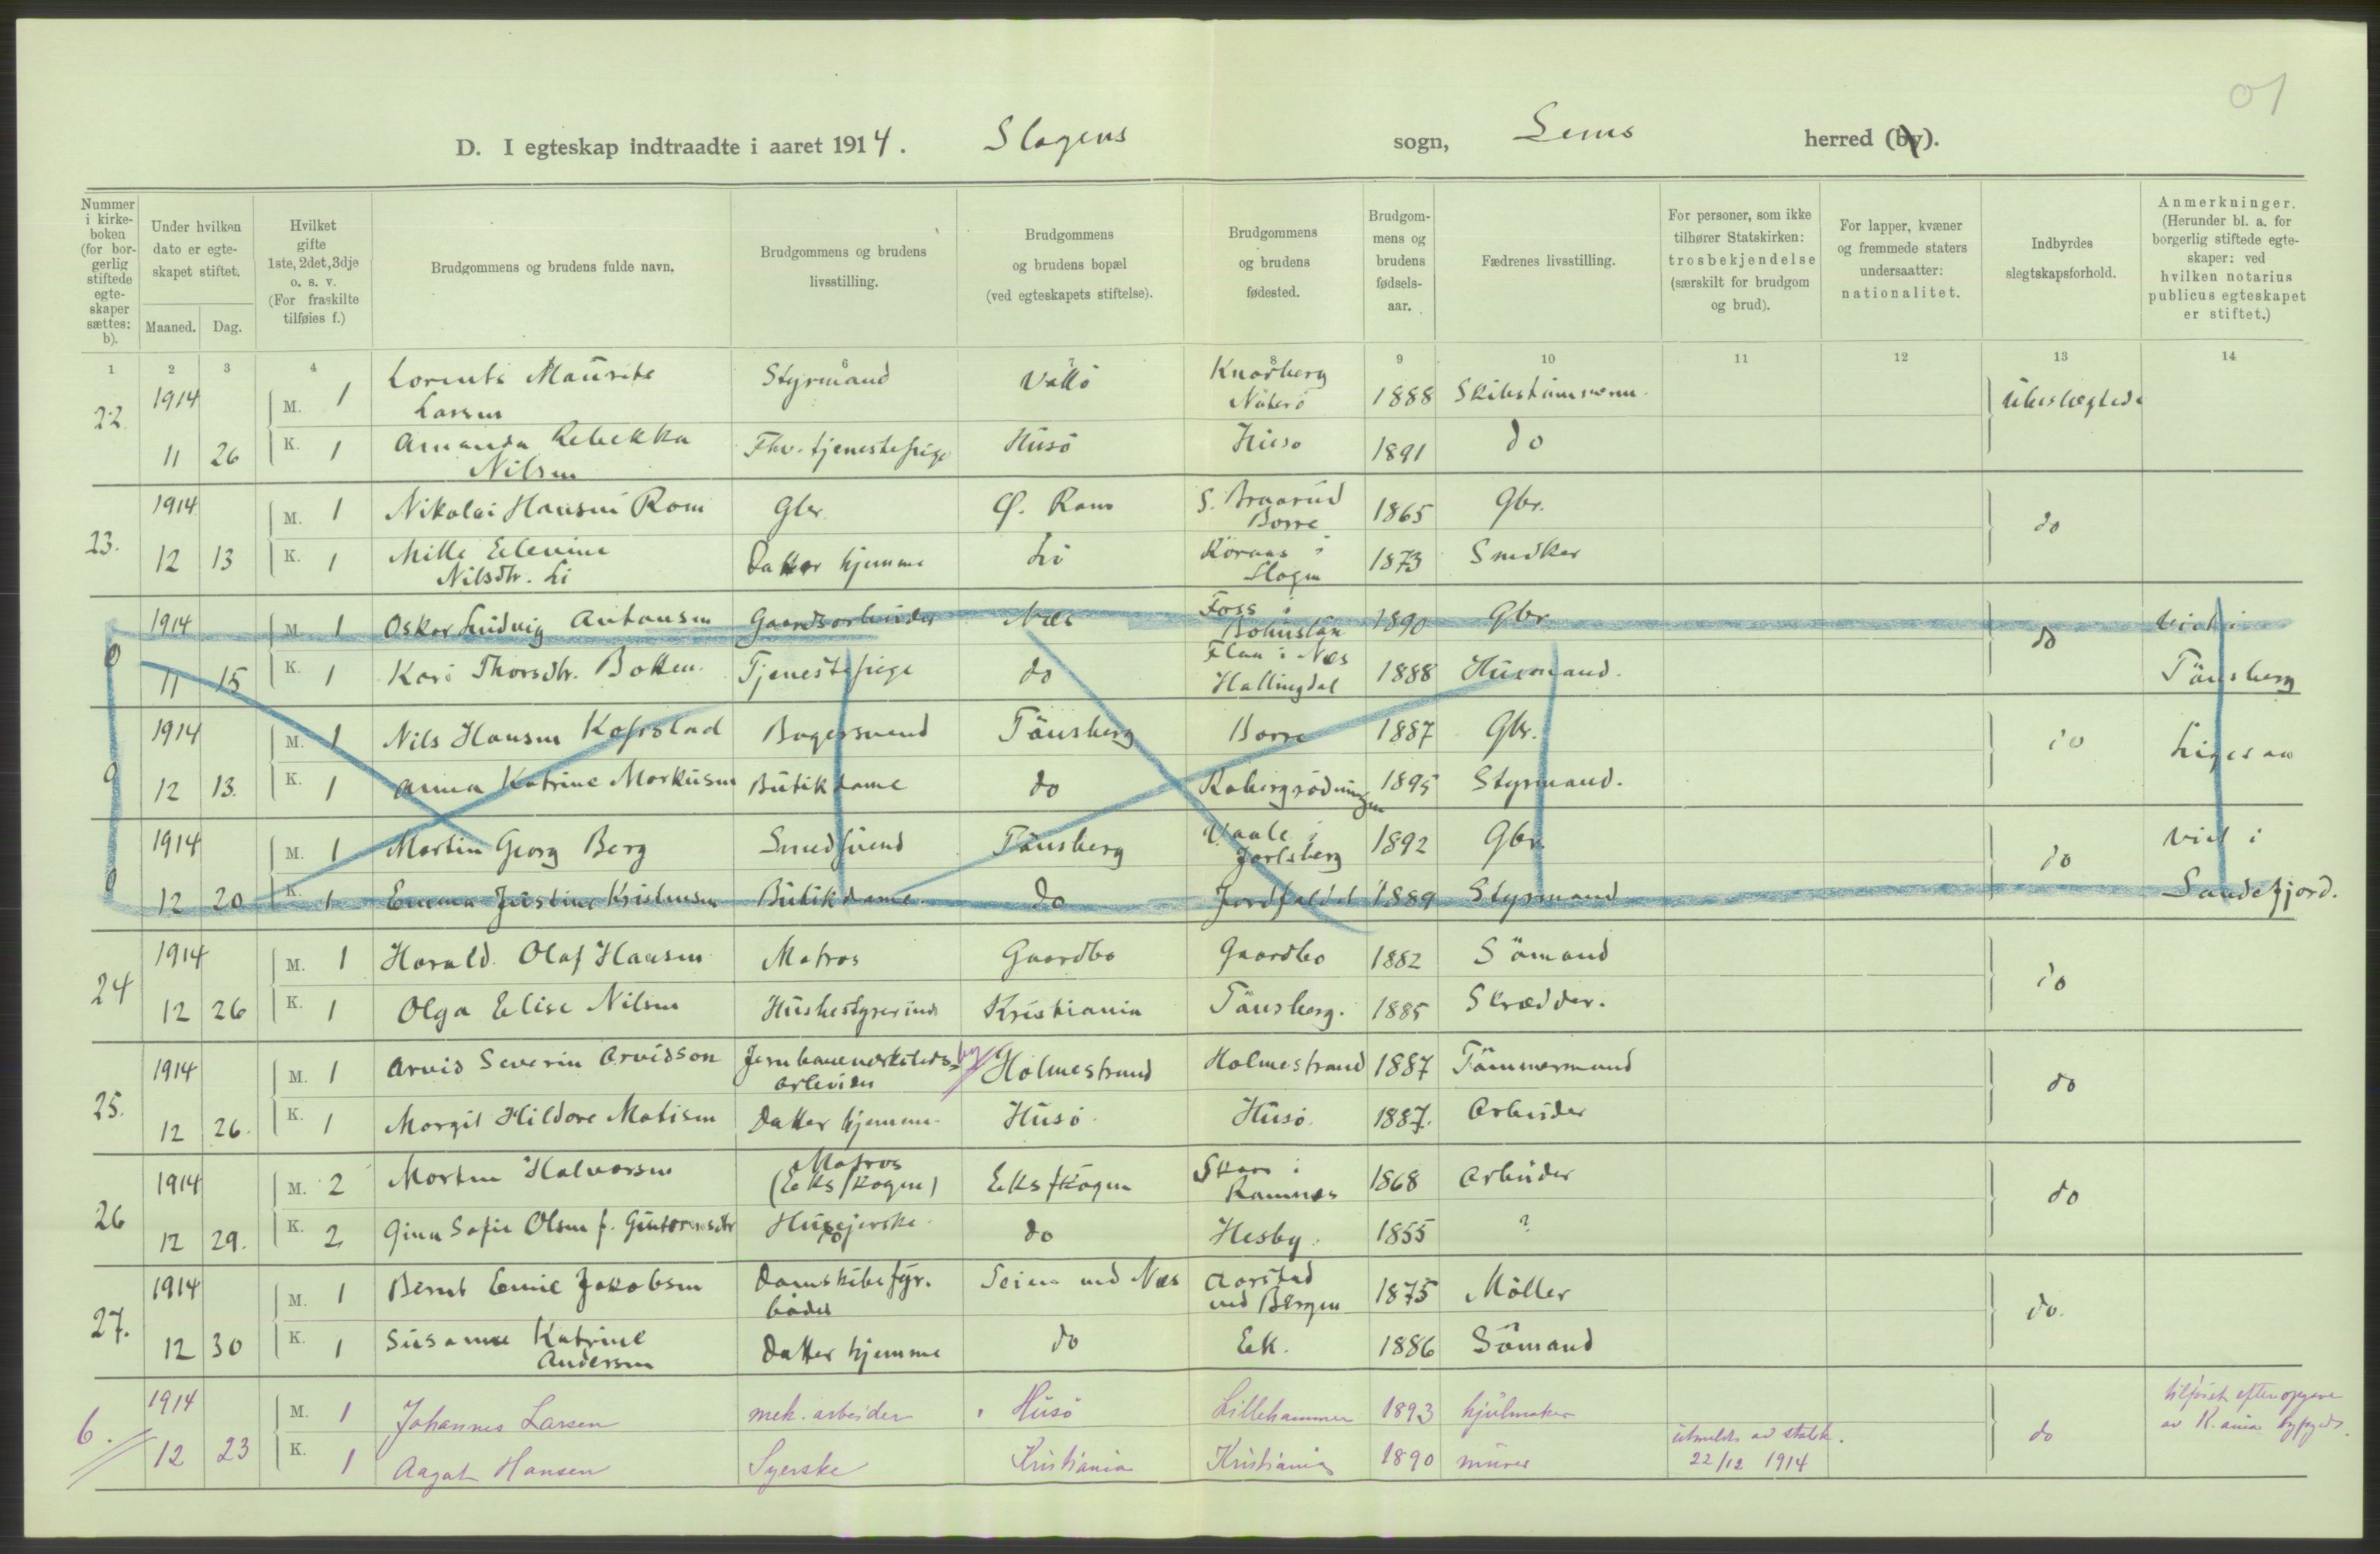 01
D. I egteskap indtraadte i aaret 1914. Slagens sogn, Sems herred (by).
Nummer i kirkeboken (for borgerlig stiftede egteskaper sættes: b).
Under hvilken dato er egteskapet stiftet.
Maaned. Dag.
Hvilket gifte 1ste, 2det, 3dje o. s. v. (For fraskilte tilføies f.)
Brudgommens og brudens fulde navn.
Brudgommens og brudens livsstilling.
Brudgommens og brudens bopæl (ved egteskapets stiftelse).
Brudgommens og brudens fødested.
Brudgommens og brudens fødselsaar.
Fædrenes livsstilling.
For personer, som ikke tilhører Statskirken: trosbekjendelse (særskilt for brudgom og brud).
For lapper, kvæner og fremmede staters undersaatter: nationalitet.
Indbyrdes slegtskapsforhold.
Anmerkninger. (Herunder bl. a. for borgerlig stiftede egteskaper: ved hvilken notarius publicus egteskapet er stiftet.)
1 2 3 4 6 7 8 9 10 11 12 13 14
22. 1914 M. 1 Lorents Maurits Larsen Styrmand Vallö Knarberg Nöterö 1888 Skibstömmerm. Ubeslegtede
11 26 K. 1 Amanda Rebekka Nilsen Fhv. tjenestepige Husö Husö 1891 do
23. 1914 M. 1 Nikolai Hansen Rom Gbr. Ø. Rom S. Braarud Borre 1865 Gbr. do
12 13 K. 1 Mille Elevine Nilsdtr. Li Datter hjemme Li i Slagen 1873 Snedker
0 1914 M. 1 Oskar Ludvig Antonsen Gaardsarbeider Næs Foss i Bohuslän 1890 Gbr. do viet i Tönsberg
11 15 K. 1 Kari Thorsdtr. Botten. Tjenestepige do i Næs Hallingdal 1888 Husmand.
9 1914 M. 1 Nils Hansen Kopstad Bagersvend Tönsberg Borre 1887 Gbr. do Ligesaa
12 13. K. 1 Anna Katrine Markusen Butikdame do 1895 Styrmand.
0 1914 M. 1 Martin Georg Berg Smedsvend Tönsberg Vaale i Jarlsberg 1892 Gbr. do viet i Sandefjord.
12 20 K. 1 Emma Justine Kristensen Butikdame do Jordfaldet 1889 Styrmand
24 1914 M. 1 Harald Olaf Hansen Matros Gaardbo Gaardbo 1882 Sömand do
12 26 K. 1 Olga Elise Nilsen Husbestyrerinde Kristiania Tönsberg. 1885 Skrædder.
25. 1914 M. 1 Arvid Severin Arvidson Jernbaneverksteds-arbeider by Holmestrand Holmestrand 1887 Tömmermand do
12 26. K. 1 Margit Hildore Matisen Datter hjemme Husö Husö 1887. Arbeider
26 1914 M. 2 Morten Halvorsen Matros (Ekskogen) Ekskogen i Ramnes 1868 Arbeider do
12 29. K. 2 Gina Sofie Olsen f. Guttormsdtr Huseierske do Hesby. 1855 ?
27. 1914 M. 1 Bernt Emil Jakobsen Damskibsfyrböder ved Næs Aarstad ved Bergen 1875 Möller do.
12 30 K. 1 Susanne Katrine Andersen Datter hjemme do Ek. 1886 Sömand
6. 1914 M. 1 Johannes Larsen mek. arbeider Husö Lillehammer 1893 hjulmaker do tilföiet efter opgave av K.ania byfoged.
12 23 K. 1 Aagot Hansen Syerske Kristiania Kristiania 1890 murer utmeldt av statsk. 22/12 1914